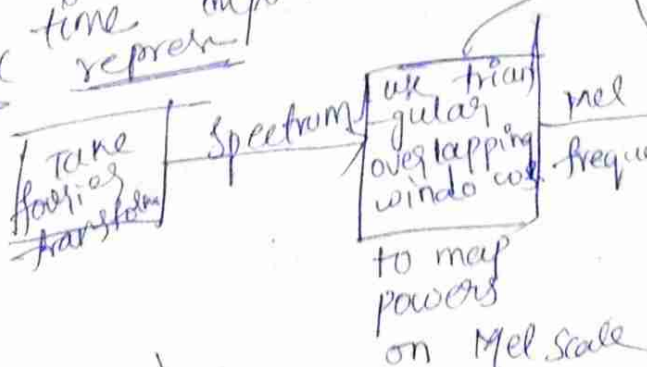 time
repren
Take
fourier
transform
Spectrum
use trian
gular
overlapping
windows
to map
powers
on Mel Scale
mel
frequ